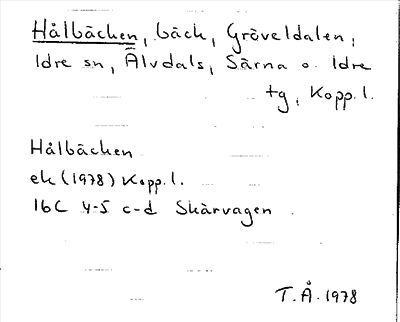 Hålbäcken, bäck, Gröveldalen,
Idre sn, Älvdals, Särna o. Idre
tg, Kopp. l.
Hålbäcken
ek (1978) Kopp. l.
16C 4-5 c-d Skärvagen
T.Å. 1978